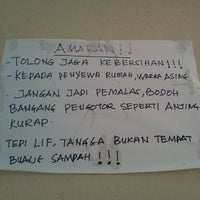 AMARAN!!
- TOLONG JAGA KEBERSIHAN!!!
- KEPADA PENYEWA RUMAH, WARGA ASING
- JANGAN JADI PEMALAS, BODOH
BANGANG PENGOTOR SEPERTI ANJING
KURAP.
TEPI LIF, TANGGA BUKAN TEMPAT
BUANG SAMPAH!!!